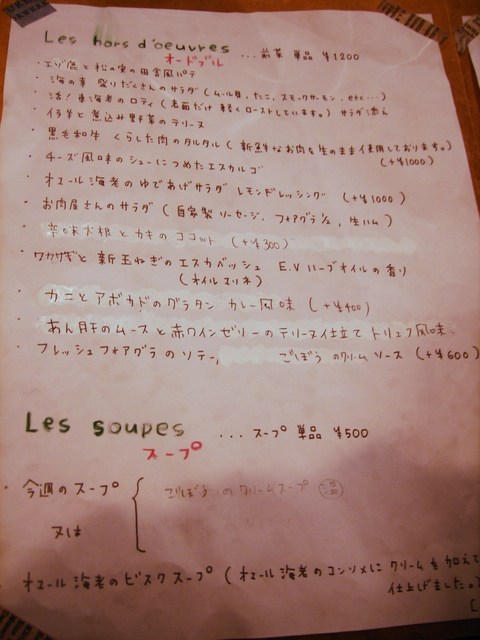 Les hors d'oeuvres ... 前菜 単品 ¥1200
オードブル
・エゾ鹿と松の実の田舎風パテ
・海の幸 盛りだくさんのサラダ (ムール貝、たこ、スモークサーモン、etc...)
・活！車海老のロティ (表面だけ軽くローストしています。) サラダ添え
・イチヂと煮込み野菜のテリーヌ
・黒毛和牛 くらした肉のタルタル (新鮮なお肉を生のまま使用しております。)
(+¥1000)
・チーズ風味のシューにつめたエスカルゴ
・オマール海老のゆであげサラダ レモンドレッシング (+¥1000)
・お肉屋さんのサラダ (自家製ソーセージ、フォアグラ、生ハム)
・辛味大根とカキのココット (+¥300)
・ワカサギと新玉ねぎのエスカベッシュ E.Vハーブオイルの香り
(オイルマリネ)
・カニとアボカドのグラタン カレー風味 (+¥400)
・あん肝のムースと赤ワインゼリーのテリーヌ仕立て トリュフ風味
・フレッシュフォアグラのソテー、ごぼうのクリームソース (+¥600)
Les soupes ... スープ 単品 ¥500
スープ
・今週のスープ { ごぼうのクリームスープ
又は
オマール海老のビスクスープ (オマール海老のコンソメにクリームを加えて
仕上げました。)